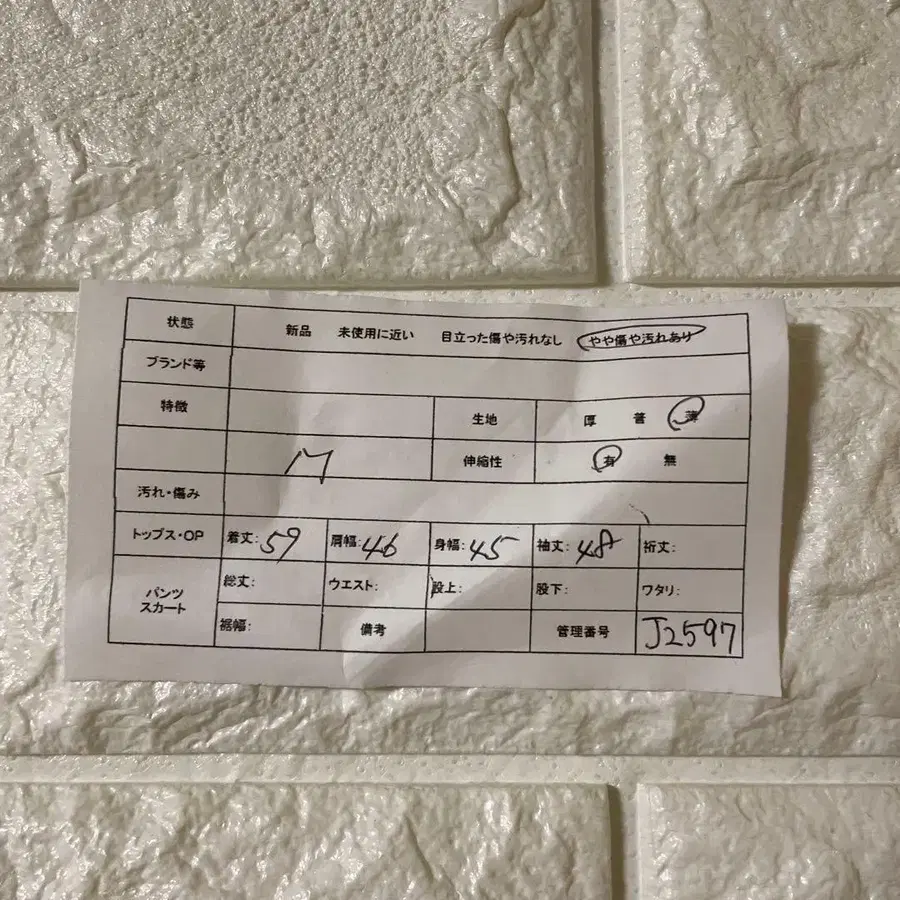 状態 新品 未使用に近い 目立った傷や汚れなし やや傷や汚れあり
ブランド等
特徴 生地 厚 普 薄
伸縮性 有 無
汚れ・傷み
トップス・OP 着丈:59 肩幅:46 身幅:45 袖丈:48 裄丈:
パンツ スカート 総丈: ウエスト: 股上: 股下: ワタリ:
裾幅: 備考 管理番号 J2597